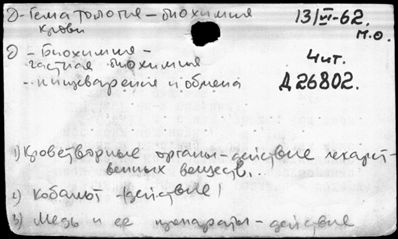 д-Гематология-биохимия
крови
13/VI-62.
М.О.
д-Биохимия-
частная биохимия
-пищеварения и обмена
Чит.
Д26802.
1) Кроветворные органы-действие лекарст-
венных веществ.
2) Кобальт-действие!
3) Медь и ее препараты-действие